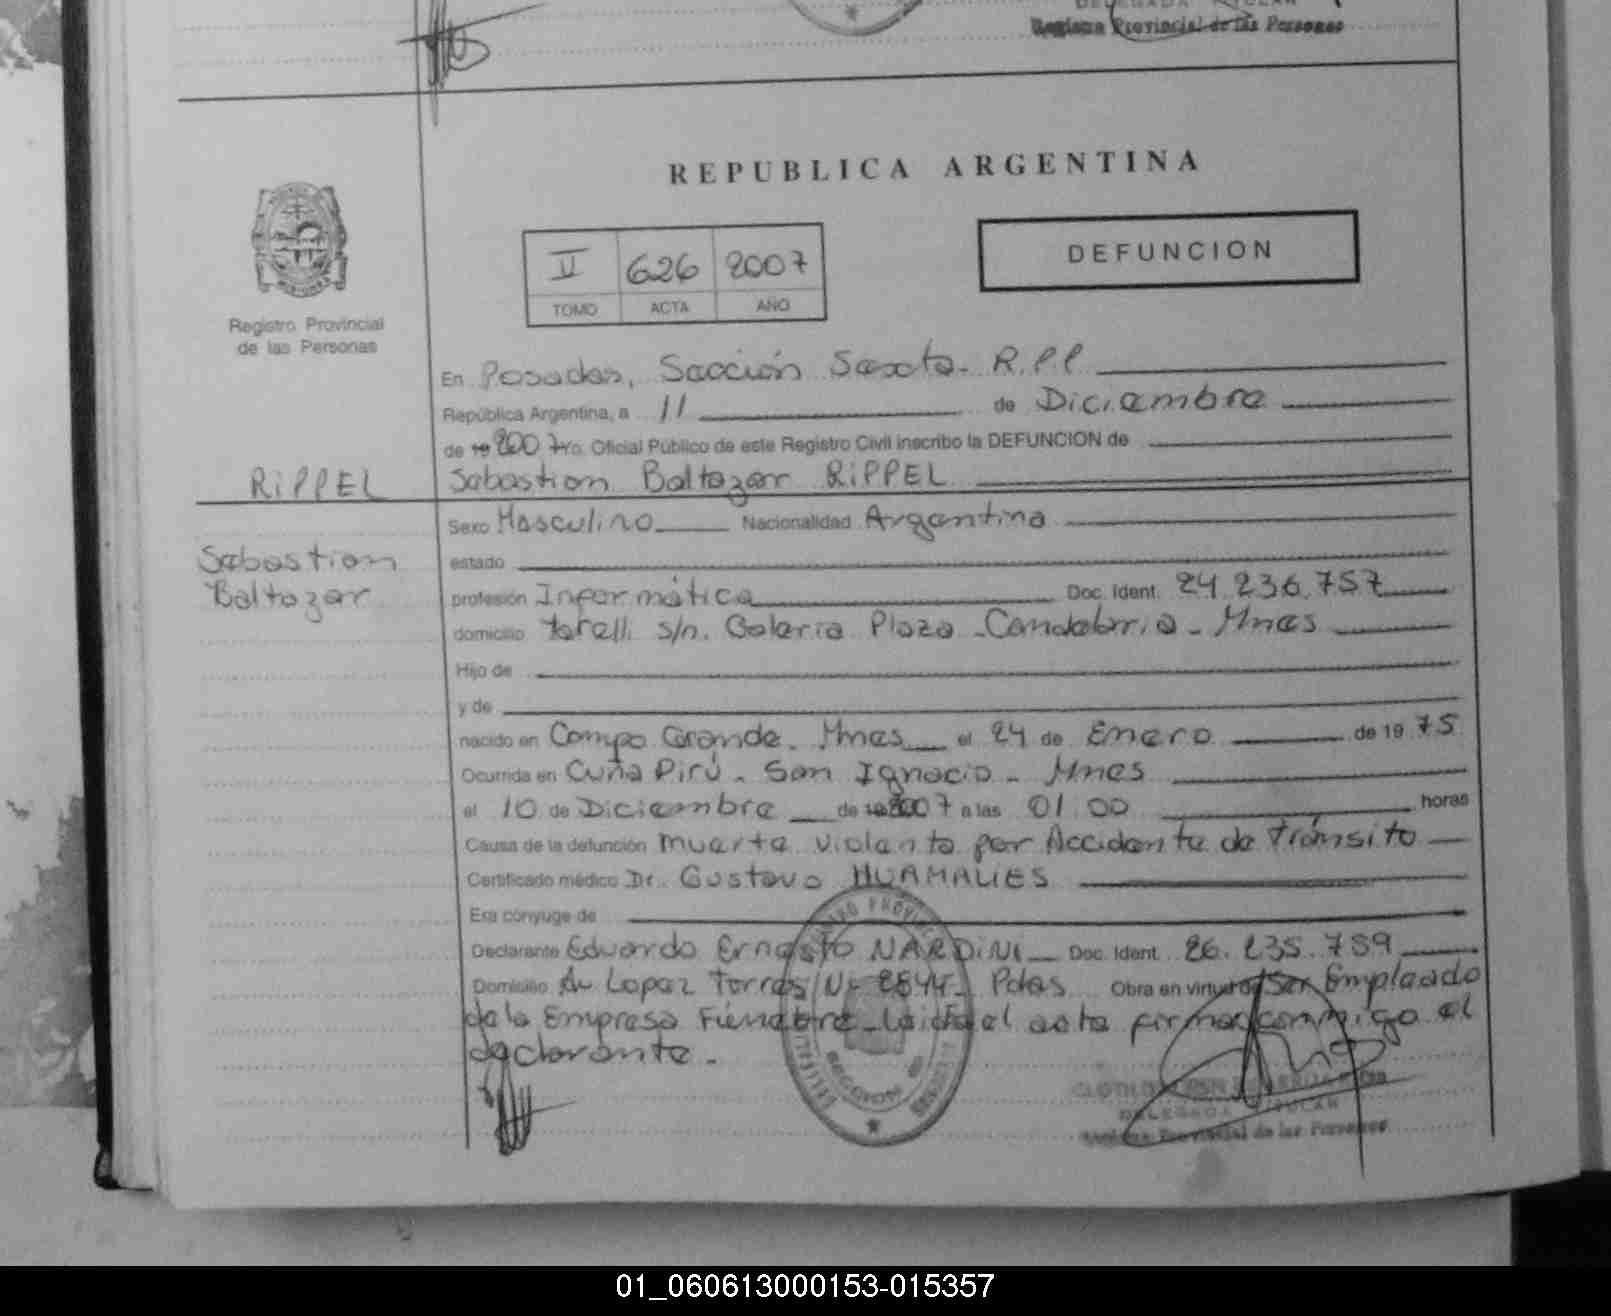 DELEGADA TITULAR
Registro Provincial de las Personas
REPUBLICA ARGENTINA
II 626 2007
TOMO ACTA AÑO
DEFUNCION
Registro Provincial
de las Personas
En Posadas, Sección Sexta. R.P.P
República Argentina, a 11 de Diciembre
de 19 2007 Yo. Oficial Público de este Registro Civil inscribo la DEFUNCION de
RiPPEL
Sebastian Baltazar RiPPEL
Sebastian
Baltazar
Sexo Masculino Nacionalidad Argentina
estado
profesión Informática Doc. Ident. 24.236.757
domicilio Torelli s/n. Galeria Plaza - Candelaria - Mnes
Hijo de
y de
nacido en Campo Grande. Mnes el 24 de Enero de 19 75
Ocurrida en Cuña Pirú - San Ignacio - Mnes
el 10 de Diciembre de 19 2007 a las 01:00 horas
Causa de la defunción muerte violenta por Accidente de tránsito
Certificado médico Dr. Gustavo HUAMALIES
Era cónyuge de
Declarante Eduardo Ernesto NARDiNi Doc. Ident. 26.235.759
Domicilio Av Lopez Torres N° 2544 - Pdas Obra en virtud de Ser Empleado
de la Empresa Fúnebre - Leida el acta firma conmigo el
declarante.
DELEGADA TITULAR
Registro Provincial de las Personas
01_060613000153-015357